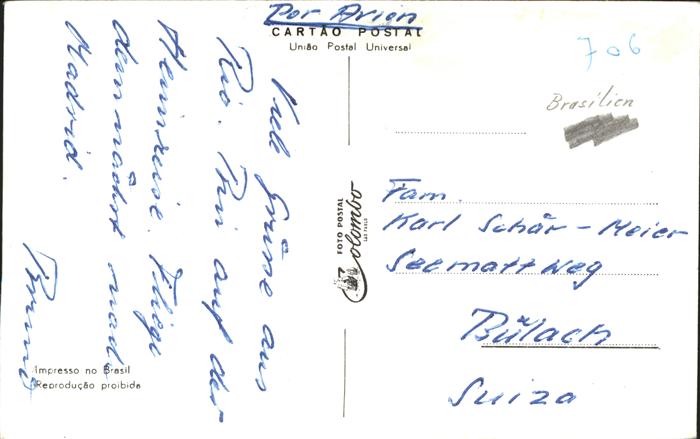 Por Avion
CARTÃO POSTAL
União Postal Universal
706
Brasilien
Viele Grüsse aus
Rio. Bin auf der
Heimreise. Fliege
demnächst nach
Madrid.
Bruno
FOTO POSTAL
Colombo
SÃO PAULO
Fam.
Karl Schär-Meier
Seemattweg
Bülach
Suiza
Impresso no Brasil
Reprodução proibida